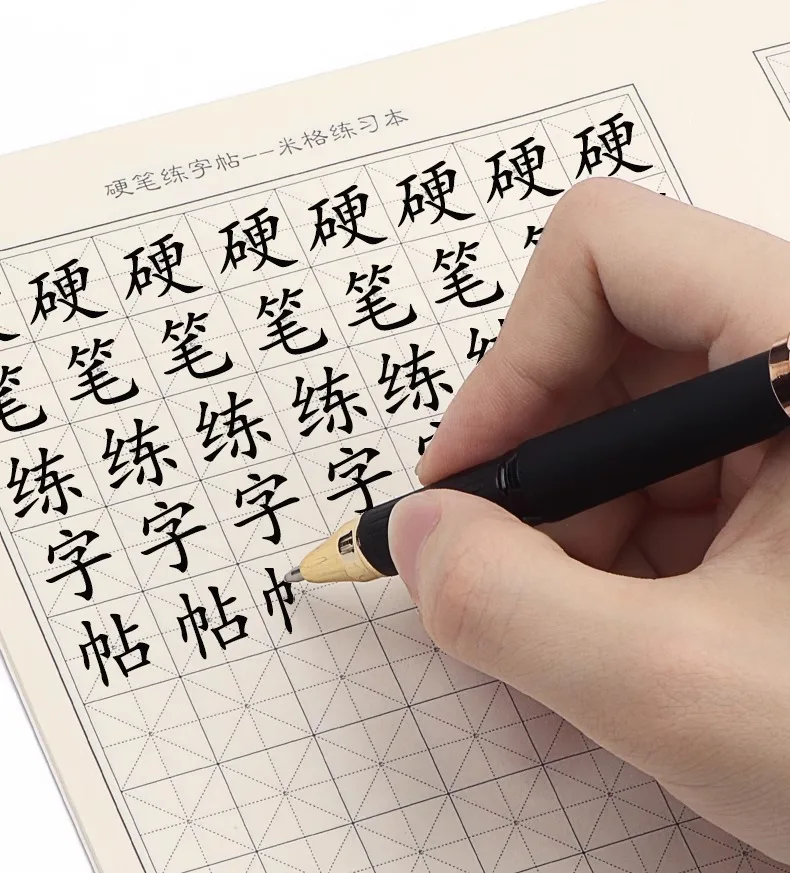 硬笔练字帖--米格练习本
硬硬硬硬硬硬硬
笔笔笔笔笔笔
练练练练练
字字字字
帖帖